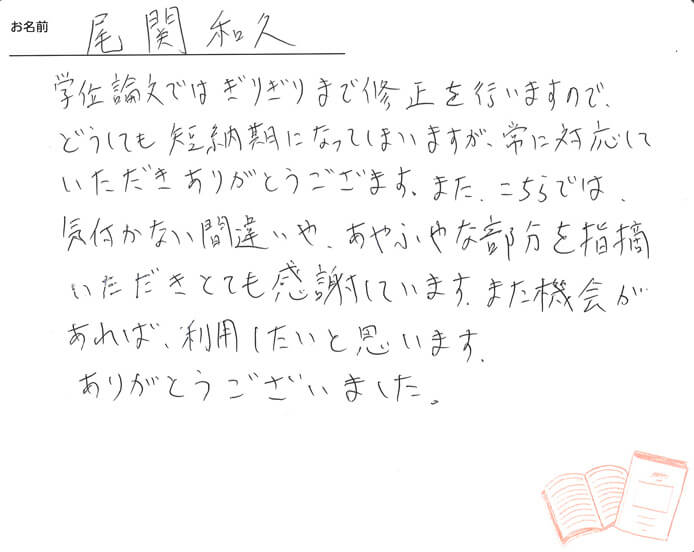 お名前 尾関和久
学位論文ではぎりぎりまで修正を行いますので、
どうしても短納期になってしまいますが、常に対応して
いただきありがとうございます。また、こちらでは、
気付かない間違いや、あやふやな部分を指摘
いただきとても感謝しています。また機会が
あれば、利用したいと思います。
ありがとうございました。